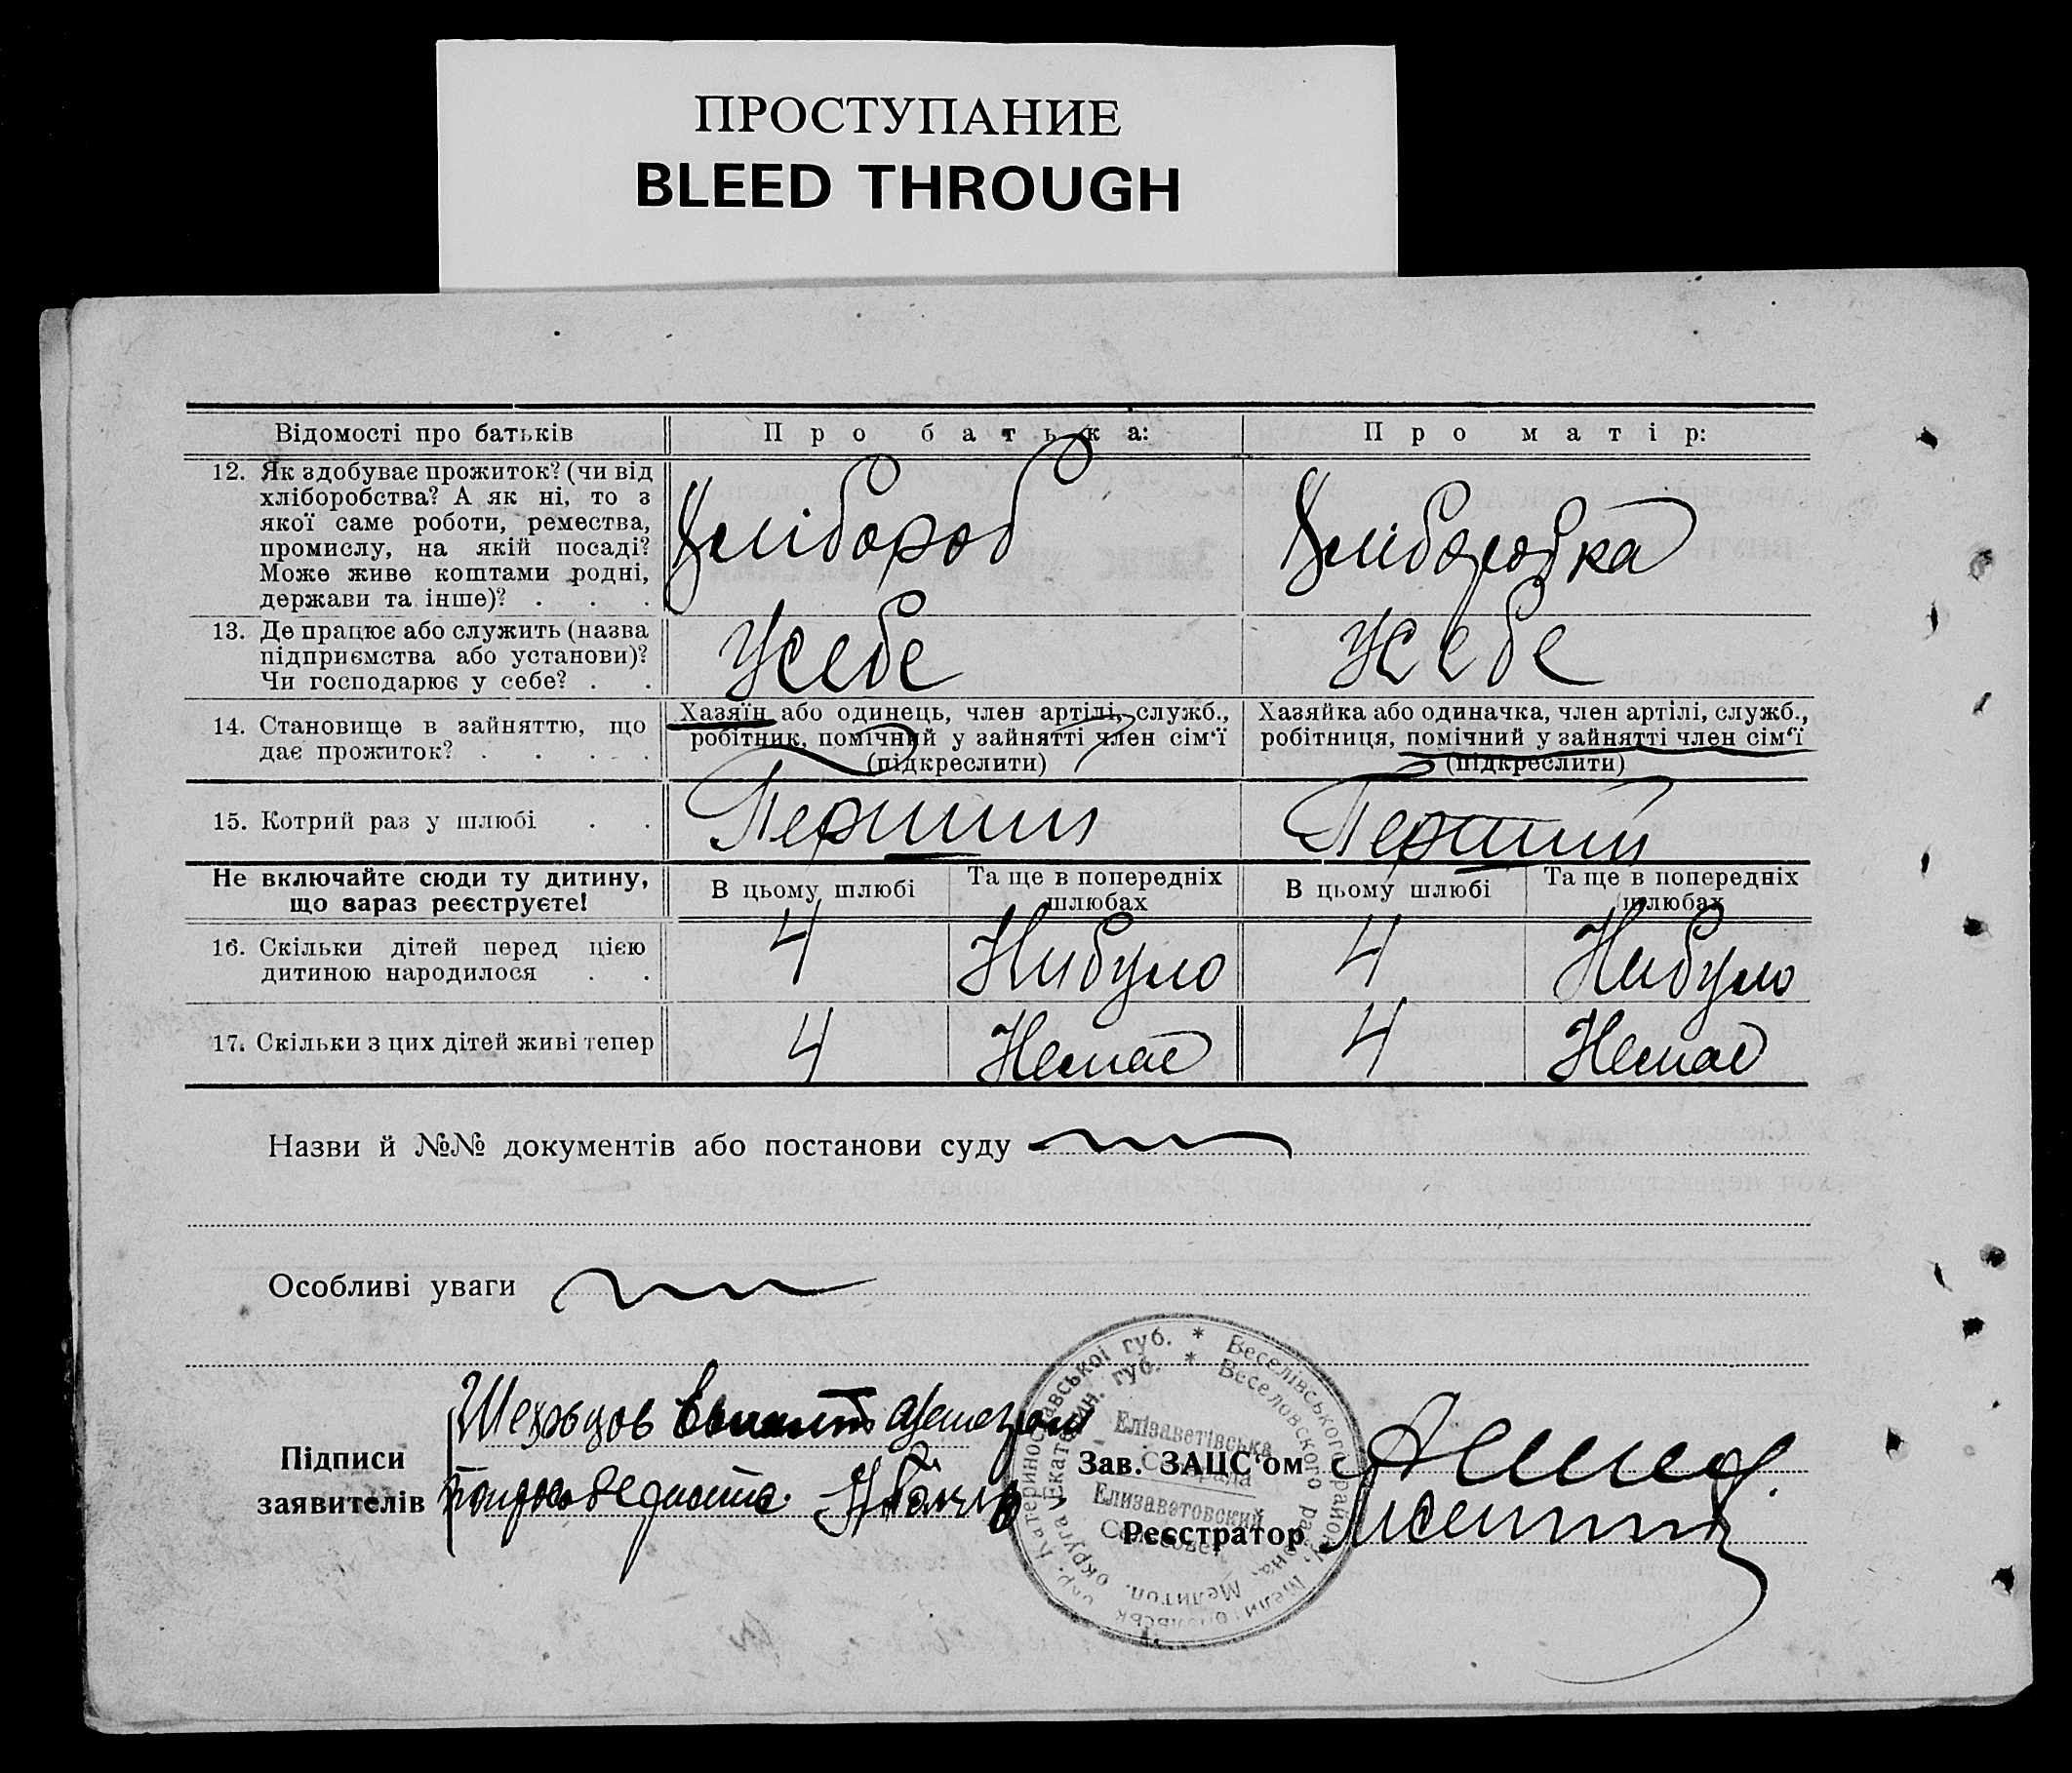 ПРОСТУПАНИЕ
BLEED THROUGH
Відомості про батьків
Про батька:
Про матір:
12. Як здобуває прожиток? (чи від
хліборобства? А як ні, то з
якої саме роботи, ремества,
промислу, на якій посаді?
Може живе коштами родні,
держави та інше)? . . .
Хлібороб
Хліборобка
13. Де працює або служить (назва
підприємства або установи)?
Чи господарює у себе? . .
У себе
У себе
14. Становище в зайняттю, що
дає прожиток? . . . .
Хазяїн або одинець, член артілі, служб.,
робітник, помічний у зайнятті член сім'ї
(підкреслити)
Хазяйка або одиначка, член артілі, служб.,
робітниця, помічний у зайнятті член сім'ї
(підкреслити)
15. Котрий раз у шлюбі . .
Перший
Перший
Не включайте сюди ту дитину,
що зараз реєструєте!
В цьому шлюбі
Та ще в попередніх
шлюбах
В цьому шлюбі
Та ще в попередніх
шлюбах
16. Скільки дітей перед цією
дитиною народилося . .
4
Нибуло
4
Нибуло
17. Скільки з цих дітей живі тепер
4
Немає
4
Немає
Назви й №№ документів або постанови суду
Особливі уваги
Підписи
заявителів
Зав. ЗАЦС'ом
Реєстратор
Катеринославської губ. * Веселівського району, Мелітопольськ. окр.
Екатерин. губ. * Веселовского района, Мелитоп. округа
Єлізаветівська
Сільрада
Елизаветовский
Сельсовет